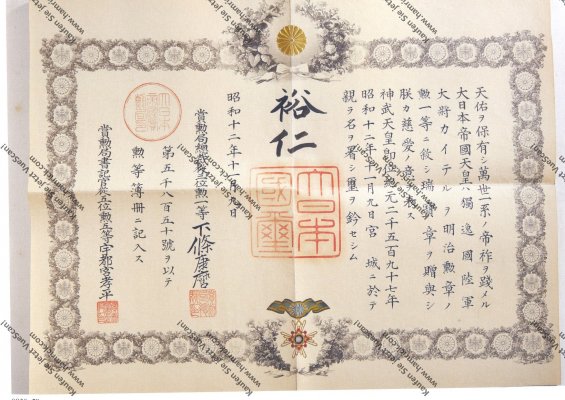 天佑ヲ保有シ萬世一系ノ帝祚ヲ踐メル
大日本帝國天皇ハ獨逸國陸軍
大將カイテルヲ明治勲章ノ
勲一等ニ敍シ瑞寶章ヲ贈與シ
朕カ慈愛ノ意ヲ表ス
神武天皇即位紀元二千五百九十七年
昭和十二年十一月九日宮城ニ於テ
親ラ名ヲ署シ璽ヲ鈐セシム
裕仁
大日本
國璽
昭和十二年十一月九日
賞勲局總裁 勲一等 下條康麿
第五千八百五十號ヲ以テ
勲等簿冊ニ記入ス
賞勲局書記官 勲五等 宇都宮孝平
Kaufen Sie jetzt VueScan!
www.hamrick.com